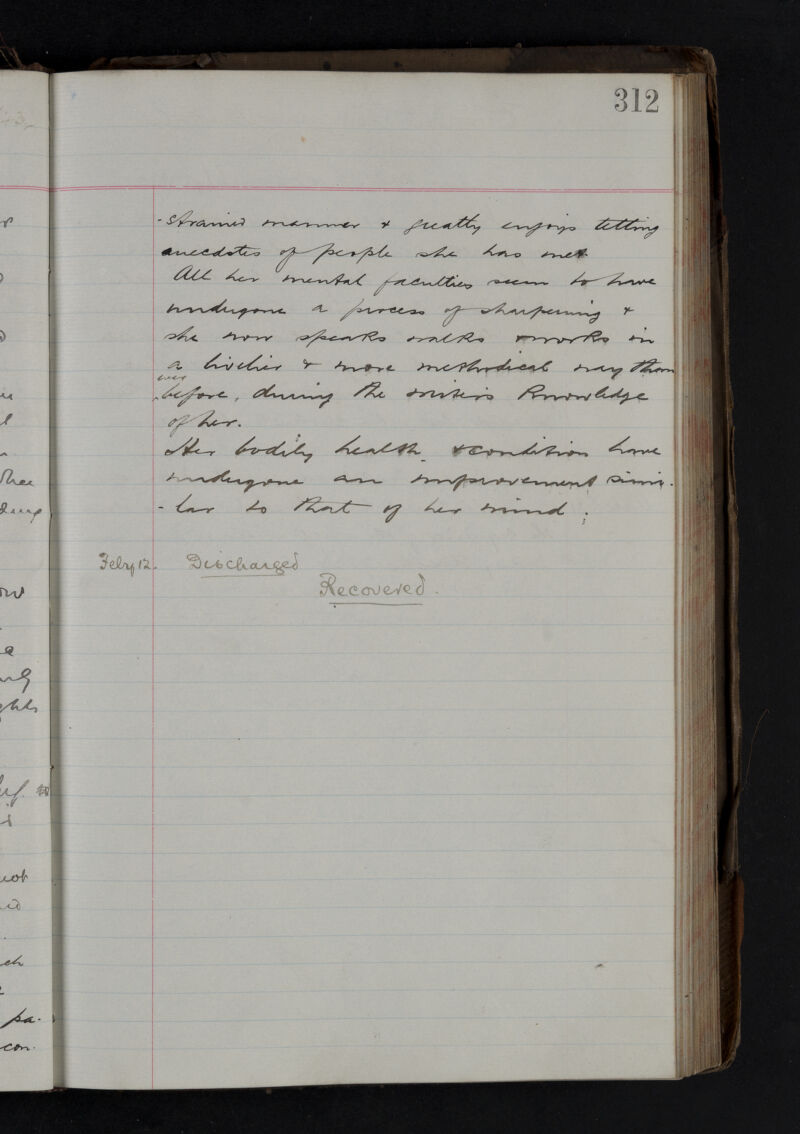 312
- strained manner & greatly enjoys telling
anecdotes of people she has met
All her mental faculties seem to have
undergone a process of sharpening &
she now speaks walks & works in
a livelier & more methodical way than
ever
before, during the writer's knowledge
of her.
Her bodily health & condition have
undergone an improvement simi-
- lar to that of her mind;
Febry 12. Discharged
Recovered.